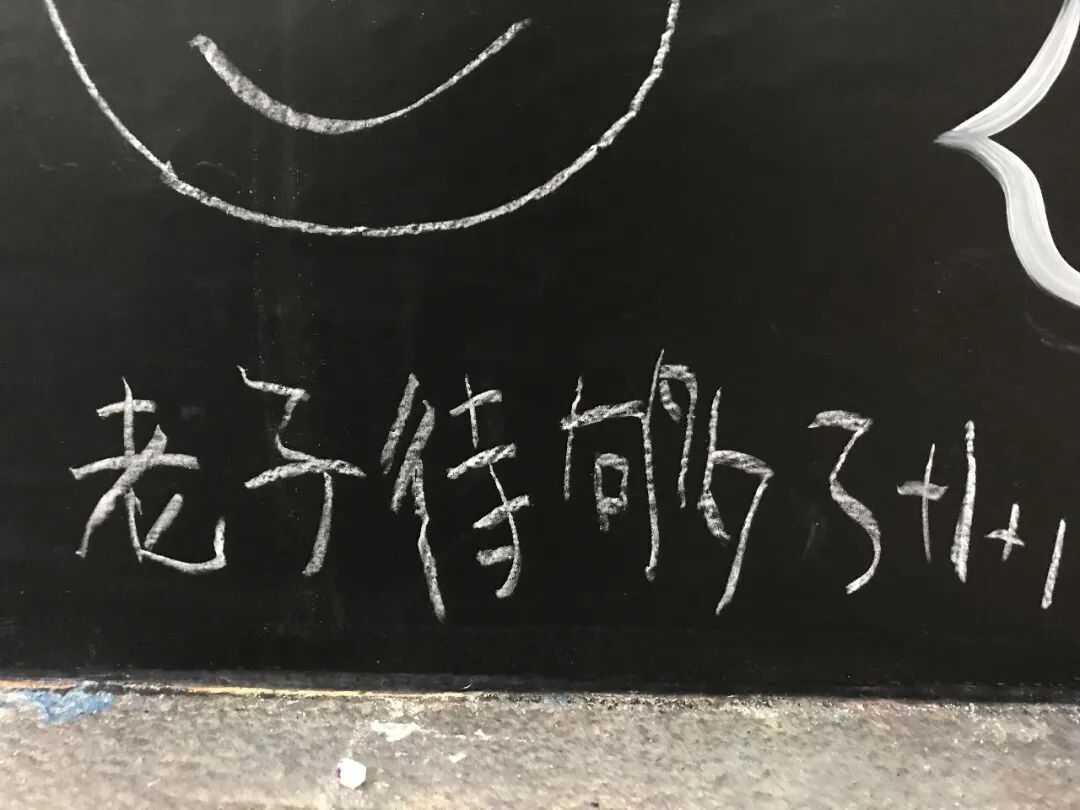 老子待够了+1+1